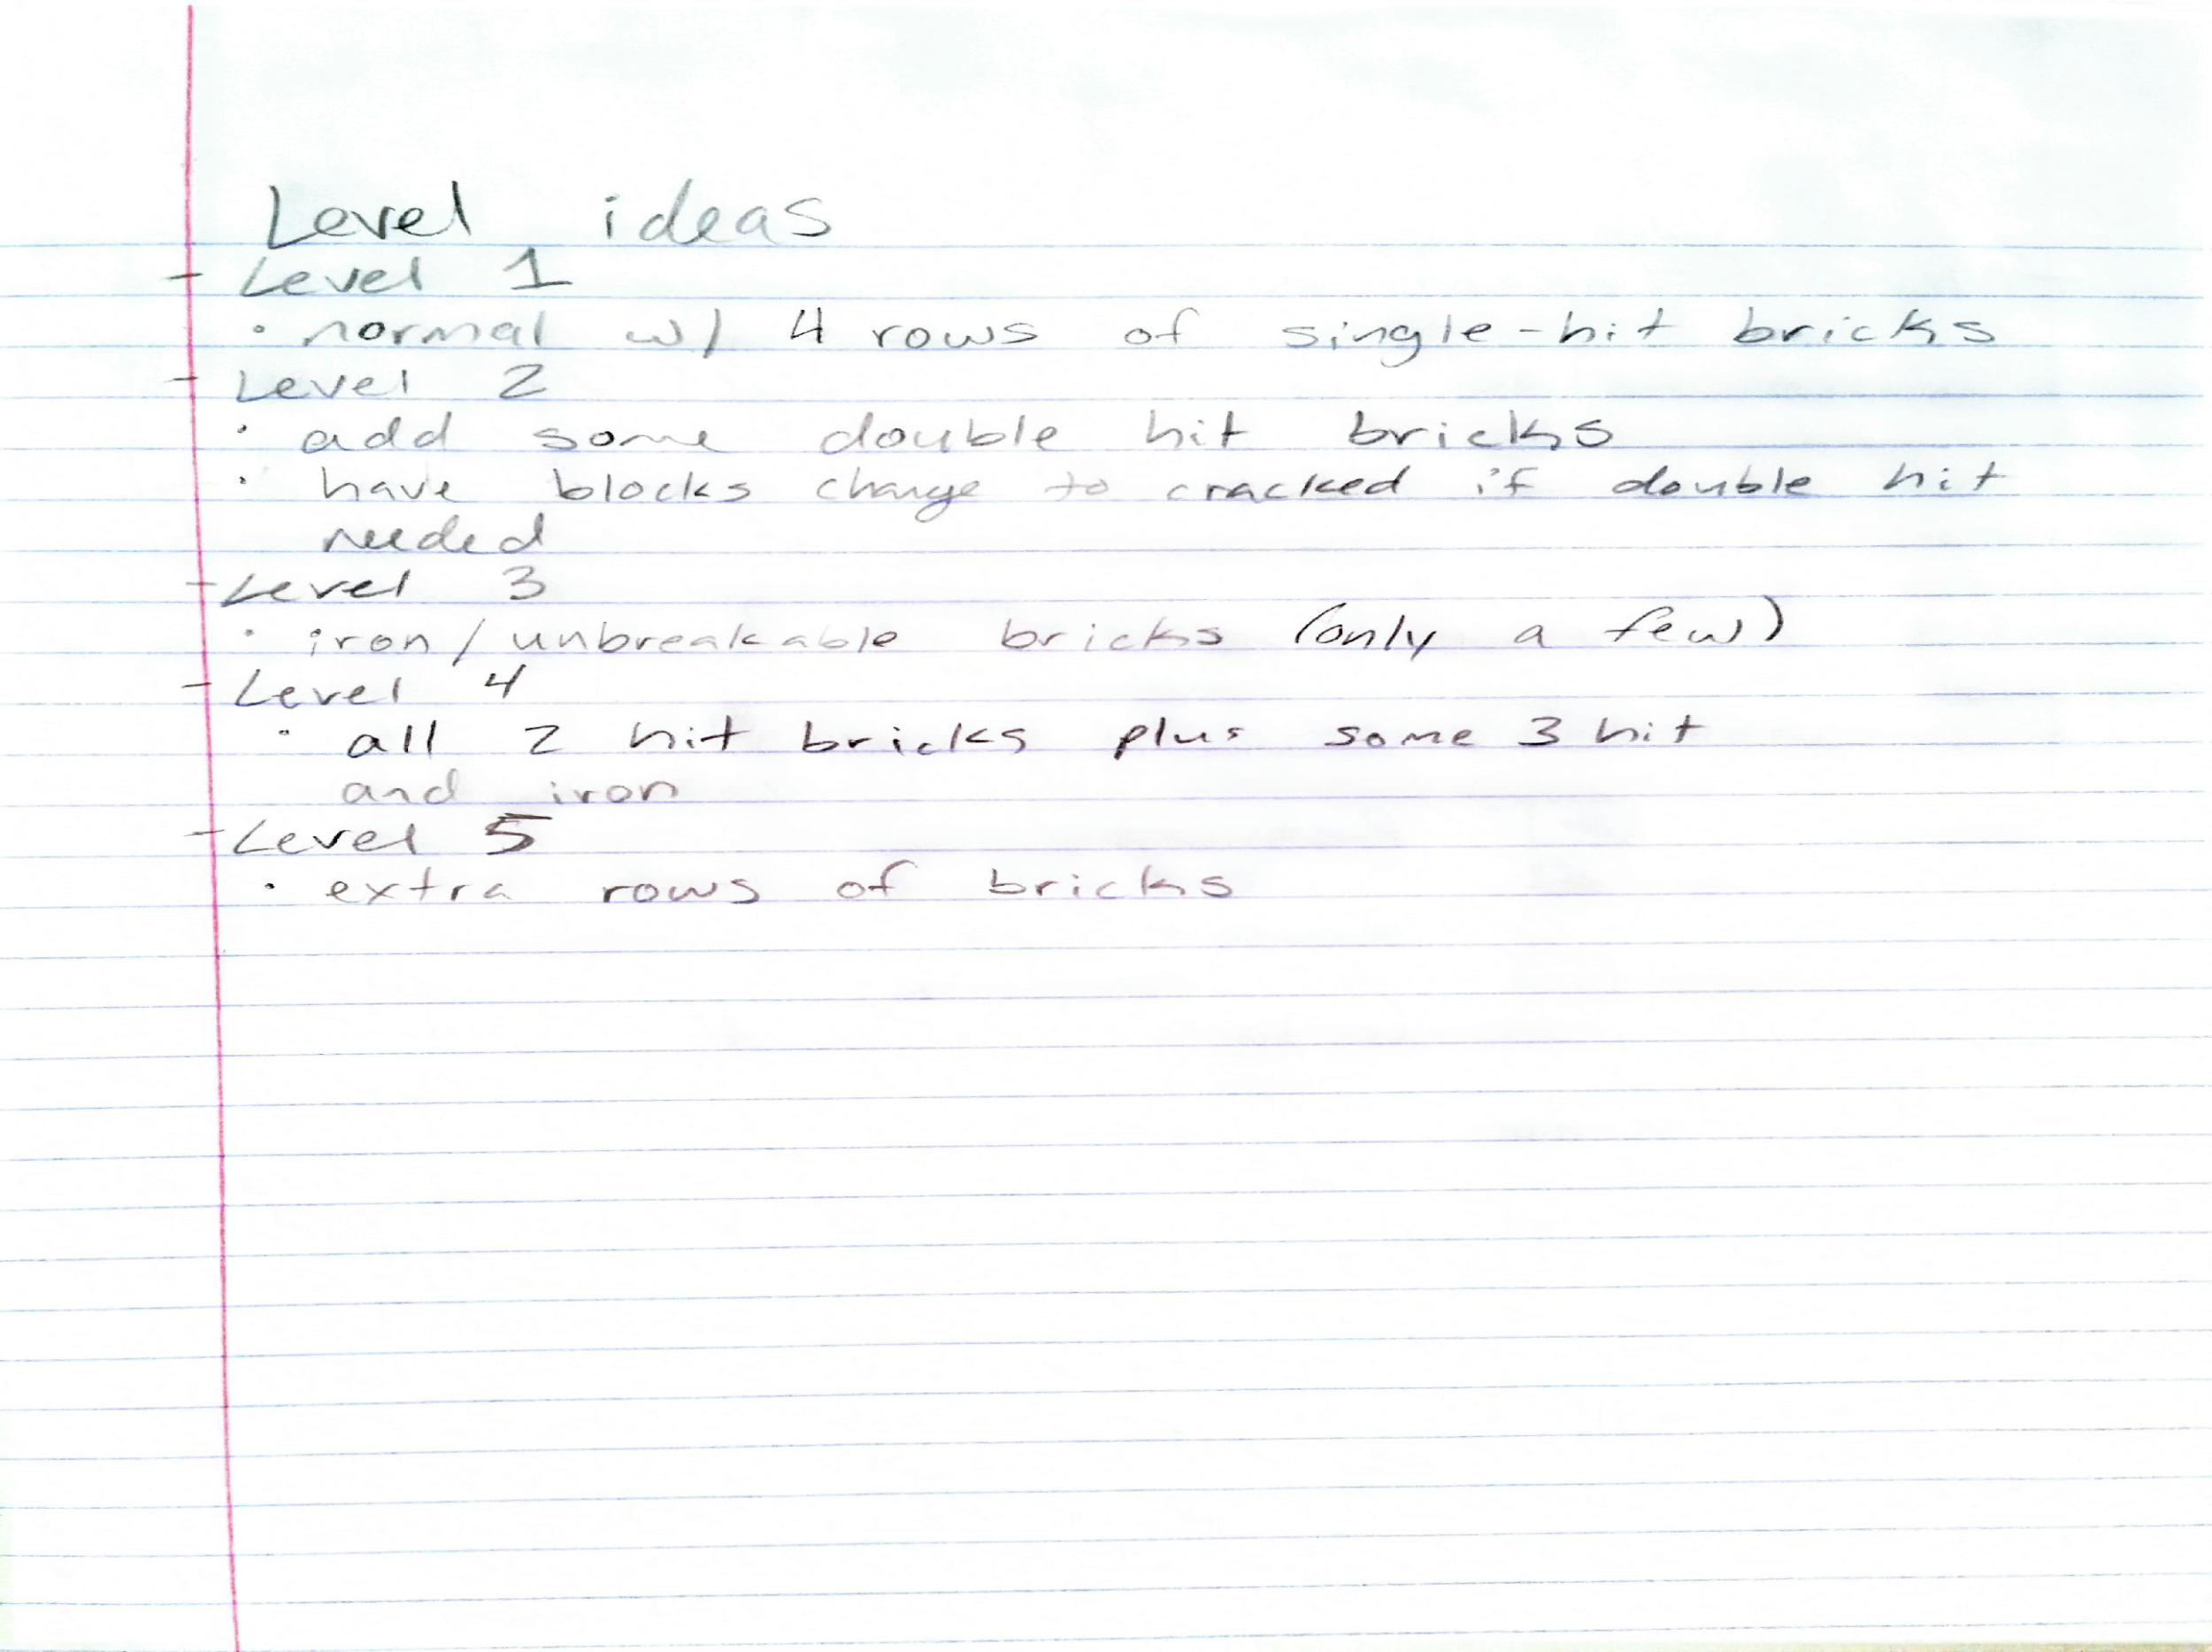 Level ideas
- Level 1
· normal w/ 4 rows of single-hit bricks
- Level 2
· add some double hit bricks
· have blocks change to cracked if double hit
needed
- Level 3
· iron/unbreakable bricks (only a few)
- Level 4
· all 2 hit bricks plus some 3 hit
and iron
- Level 5
· extra rows of bricks